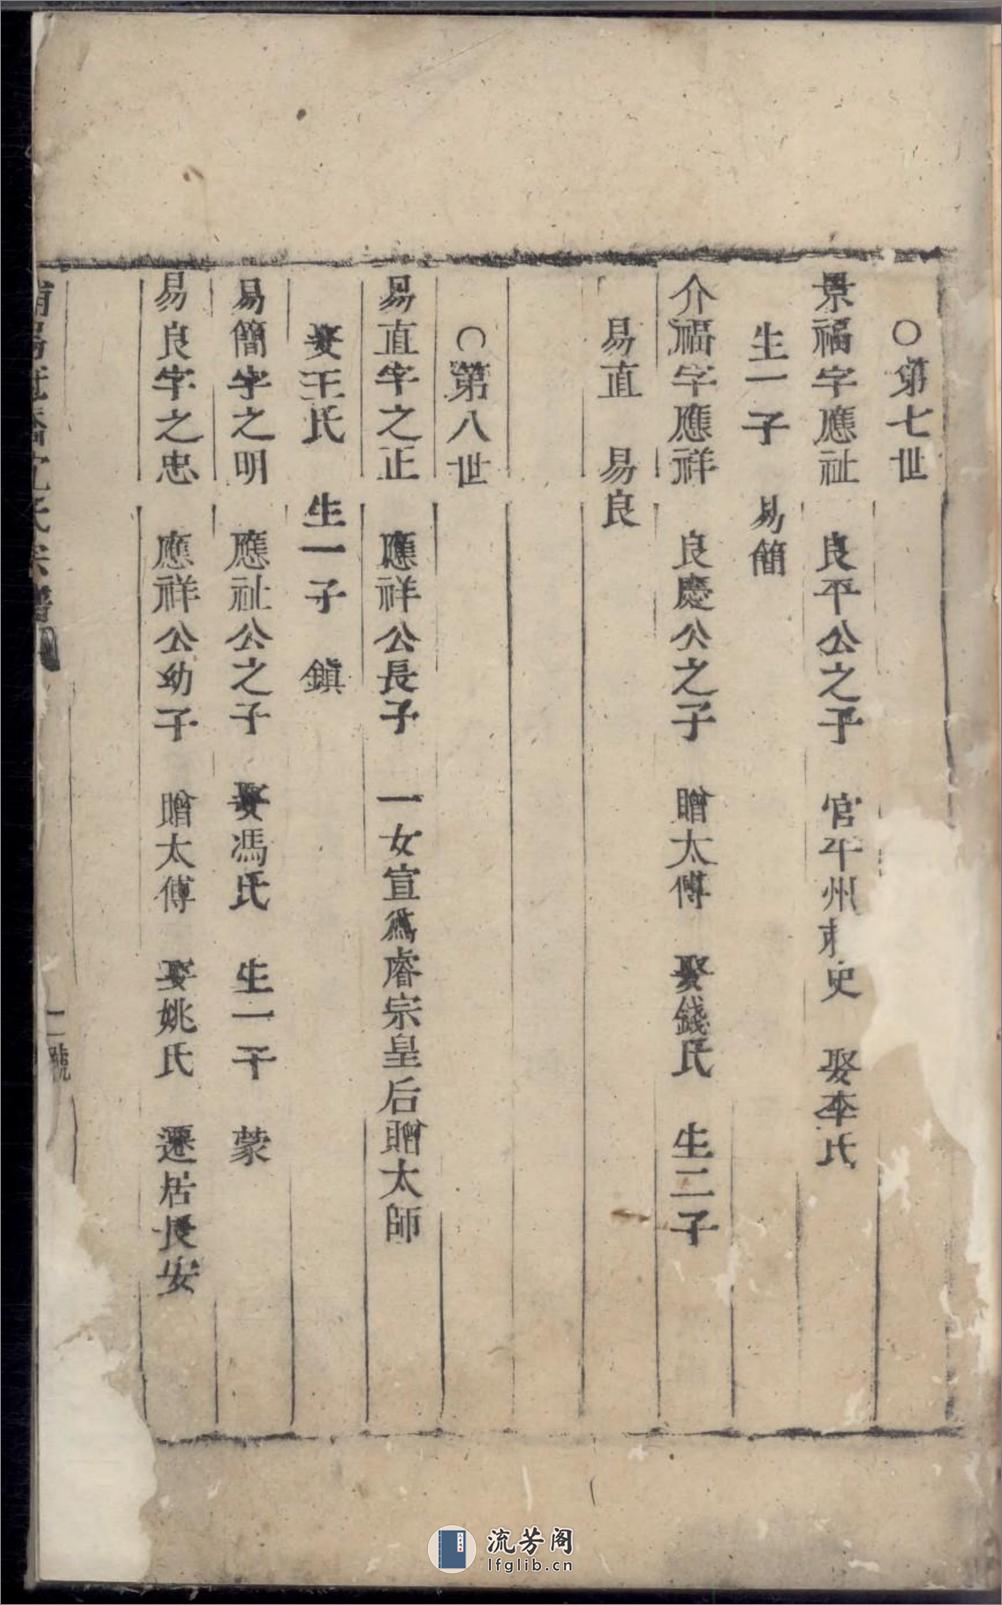 ○第七世
景福字應祉　良平公之子　官平州刺史　娶李氏
生一子　易簡
介福字應祥　良慶公之子　贈太傅　娶錢氏　生二子
易直　易良
○第八世
易直字之正　應祥公長子　一女宣爲睿宗皇后贈太師
娶王氏　生一子　鎮
易簡字之明　應祉公之子　娶馮氏　生一子　蒙
易良字之忠　應祥公幼子　贈太傅　娶姚氏　遷居長安
氏宗譜
二號
流芳阁
lfglib.cn